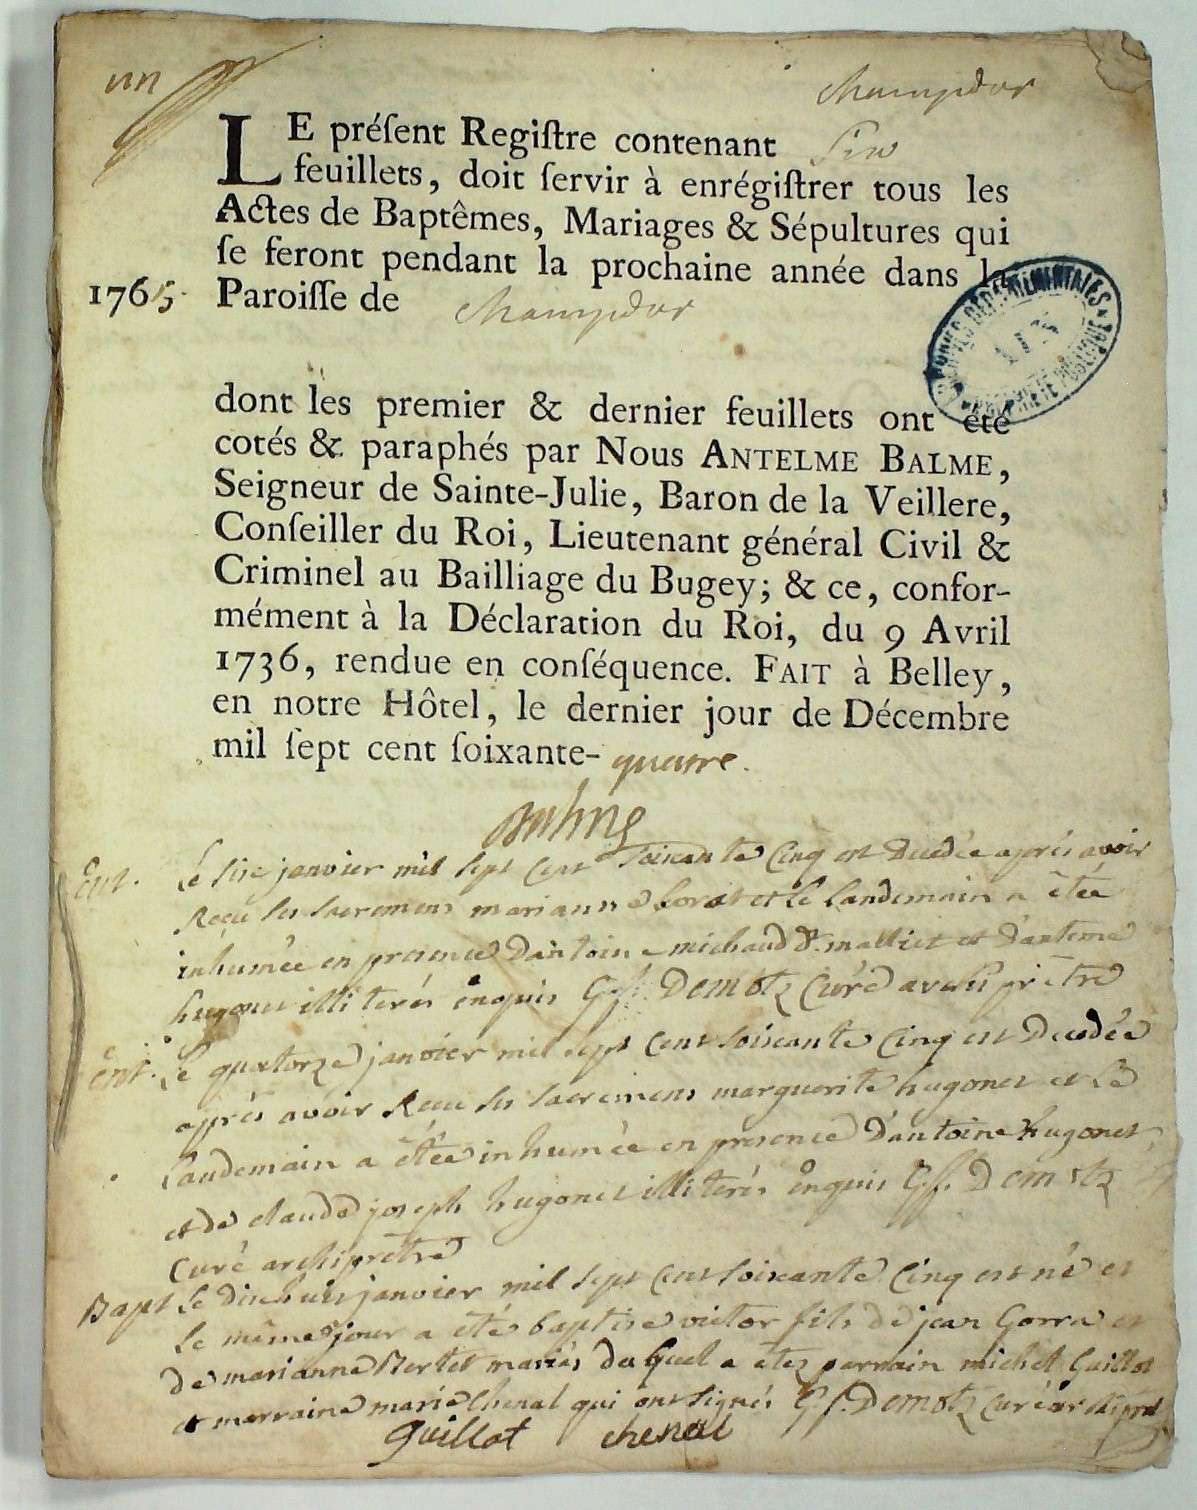 un
Champdor
LE préſent Regiſtre contenant Six
feuillets, doit ſervir à enrégiſtrer tous les
Actes de Baptêmes, Mariages & Sépultures qui
ſe feront pendant la prochaine année dans la
1765. Paroiſſe de Champdor
ARCHIVES DÉPARTEMENTALES
AIN
PROPRIÉTÉ PUBLIQUE
dont les premier & dernier feuillets ont été
cotés & paraphés par Nous ANTELME BALME,
Seigneur de Sainte-Julie, Baron de la Veillere,
Conſeiller du Roi, Lieutenant général Civil &
Criminel au Bailliage du Bugey; & ce, confor-
mément à la Déclaration du Roi, du 9 Avril
1736, rendue en conſéquence. FAIT à Belley,
en notre Hôtel, le dernier jour de Décembre
mil ſept cent ſoixante- quatre.
Ent. Le sixe janvier mil sept cent soixante cinq est decedée après avoir
Receu les sacremens marianne et le landemain a étée
inhumée en presence Dantoine michaud et Danteme
hugonet illiterés enquis Demotz Curé archiprêtre
Ent. Le quatorze janvier mil sept cent soixante Cinq est Decedée
après avoir Receu les sacremens marguerite hugonet et Le
Landemain a étée inhumée en presence Dantoine hugonet
et de claude joseph hugonet illiterés enquis Demotz
Curé archiprêtre
Bapt Le dixhuit janvier mil sept cent soixante Cinq est né et
Le même jour a été baptise victor fils de jean Gorra et
De marianne Mertet mariés du quel a étez parrain michel Guillot
et marraine marie Chenal qui ont signés Demotz Curé archipret
Guillot chenal